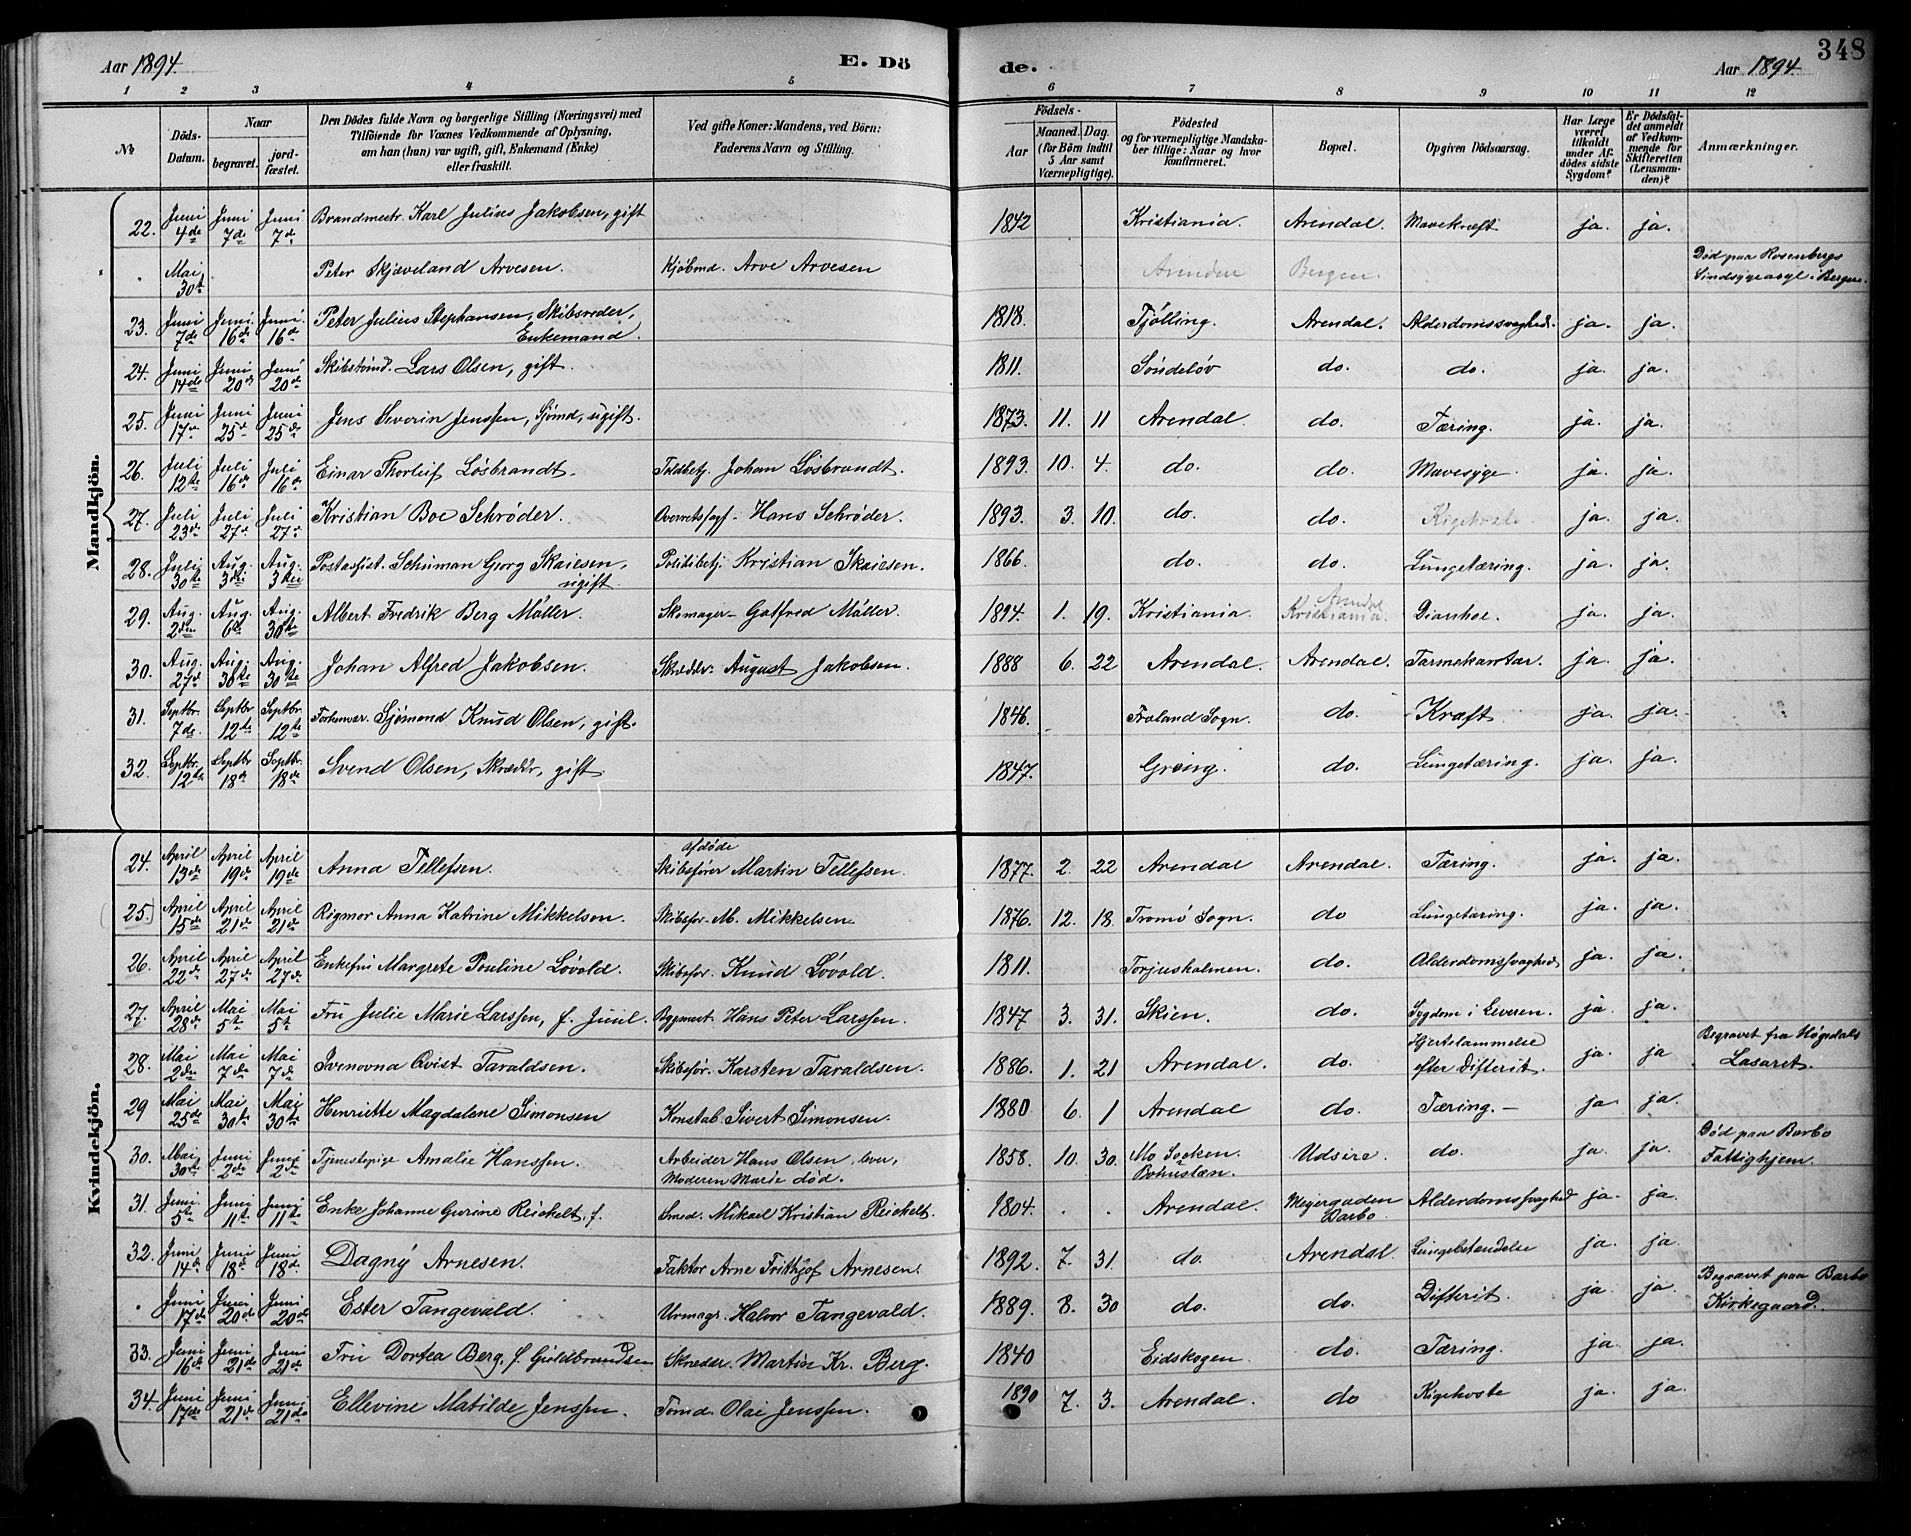 Aar 1894. E. Döde. Aar 1894. 348
1 2 3 4 5 6 7 8 9 10 11 12
№ Döds-Datum. Naar begravet. jordfæstet. Den Dödes fulde Navn og borgerlige Stilling (Næringsvei) med Tilföiende for Voxnes Vedkommende af Oplysning, om han (hun) var ugift, gift, Enkemand (Enke) eller fraskilt. Ved gifte Koner: Mandens, ved Börn: Faderens Navn og Stilling. Födsels- Aar Maaned. Dag. (for Börn indtil 5 Aar samt Værnepligtige). Födested og for værnepligtige Mandskaber tillige: Naar og hvor konfirmeret. Bopæl. Opgiven Dödsaarsag. Har Læge været tilkaldt under Afdödes sidste Sygdom? Er Dödsfaldet anmeldt af Vedkommende for Skifteretten (Lensmanden)? Anmærkninger.
Mandkjön.
22. Juni 4de Juni 7de Juni 7de Brandmestr. Karl Julius Jakobsen, gift 1842 Kristiania. Arendal. Mavekræft ja. ja.
" Mai 30t Peter Skjæveland Arvesen. Kjöbmd. Arve Arvesen Arendal Bergen. Död paa Rosenbergs Sindsygeasyl i Bergen.
23. Juni 7de Juni 16de Juni 16de Peter Julius Stephansen, Skibsreder, Enkemand. 1818. Tjölling. Arendal. Alderdomssvaghed. ja. ja.
24. Juni 14de Juni 20de Juni 20de Skibstömd. Lars Olsen, gift. 1811. Söndelöv do. do. ja. ja.
25. Juni 17de Juni 25de Juni 25de Jens Severin Jenssen, Sjömd, ugift. 1873. 11. 11 Arendal do. Tæring. ja. ja.
26. Juli 12te Juli 16de Juli 16de Einar Thorleif Lösbrandt. Toldbetj. Johan Lösbrandt. 1893. 10. 4. do. do. Mavesyge. ja. ja.
27. Juli 23de Juli 27de Juli 27de Kristian Boe Schröder. Overretssagf. Hans Schröder. 1893. 3. 10. do. do. Kigehoste ja. ja.
28. Juli 30te Aug. 3die Aug. 3die Postassist. Schuman Georg Skaiesen, ugift. Politibetj. Kristian Skaiesen. 1866. do. do. Lungetæring. ja. ja.
29. Aug. 2den Aug. 6te Aug. 30te Albert Fredrik Berg Möller. Skomager Gotfred Möller. 1894. 1. 19. Kristiania. Arendal Kristiania. Diarrhoe. ja. ja.
30. Aug. 27de Aug. 30te Aug. 30te Johan Alfred Jakobsen. Skrædder. August Jakobsen. 1888 6. 22 Arendal. Arendal. Tarmekantar. ja. ja.
31. Septbr. 7de Septbr 12te Septbr. 12te Forhenvær. Sjömand Knud Olsen, gift. 1846. Froland Sogn. do. Kræft. ja. ja.
32. Septbr. 12te Septbr 18de Septbr. 18de Svend Olsen, Skræddr, gift. 1847. Greng. do. Lungetæring. ja. ja.
Kvindekjön.
24. April 13de April 19de April 19de Anna Tellefsen. afdöde Skibsförer Martin Tellefsen. 1877. 2. 22 Arendal Arendal. Tæring. ja. ja.
25. April 15de April 21de April 21de Rigmor Anna Katrine Mikkelsen. Skibsför. M. Mikkelsen. 1876. 12. 18. Tromö Sogn. do Lungetæring. ja. ja.
26. April 22de April 27de April 27de Enkefru Margrete Pouline Lövold. Skibsför. Knud Lövold. 1811. Torjusholmen. do. Alderdomssvaghed ja. ja.
27. April 28de Mai 5t Mai 5t Fru Julie Marie Larssen, f. Juul. Bygmest. Hans Peter Larssen. 1847 3. 31. Skien. do. Sygdom i Leveren. ja ja.
28. Mai 2den Mai 7de Mai 7de Svenovna Qvist Taraldsen. Skibsför. Karsten Taraldsen. 1886. 1. 21 Arendal. do. Hjertelammelse efter Difterit. ja. ja Begravet fra Högedals Lasaret.
29 Mai 25de Mai 30te Mai 30te Henriette Magdalene Simonsen Konstab. Sivert Simonsen. 1880 6. 1 Arendal do. Tæring. – ja. ja.
30. Mai 30de Juni 2de Juni 2de Tjenestepige Amalie Hanssen. Arbeider Hans Olsen, lever, Moderen Marie död. 1858. 10. 30. Mo Socken. Bohuslæn. Udsire. do. ja. ja. Död paa Barbo Fattighjem.
31. Juni 5te Juni 11te Juni 11te Enke Johanne Gurine Reichelt. f. Smed. Mikael Kristian Reichelt. 1804. . . Arendal. Meiergaden Barbo. Alderdomssvaghed ja. ja.
32. Juni 14de Juni 18de Juni 18de Dagny Arnesen. Faktor Arne Frithjof Arnesen. 1892. 7. 31. do. Arendal. Lungebetændelse ja. ja.
" Juni 17de Juni 20de Juni 20de Ester Tangevald. Urmagr. Halvor Tangevald. 1889. 8. 30 do. do. Difterit. ja. ja. Begravet paa Barbo Kirkegaard.
33. Juni 16de Juni 21de Juni 21de Fru Dortea Berg, f. Guldbrandsen Skrædr. Martin Kr. Berg. 1840 Eidskogen. do. Tæring. ja. ja.
34. Juni 17de Juni 21de Juni 21de Ellevine Matilde Jenssen. Tömd. Olai Jenssen. 1890 7. 3. Arendal. do Kigehoste ja. ja.